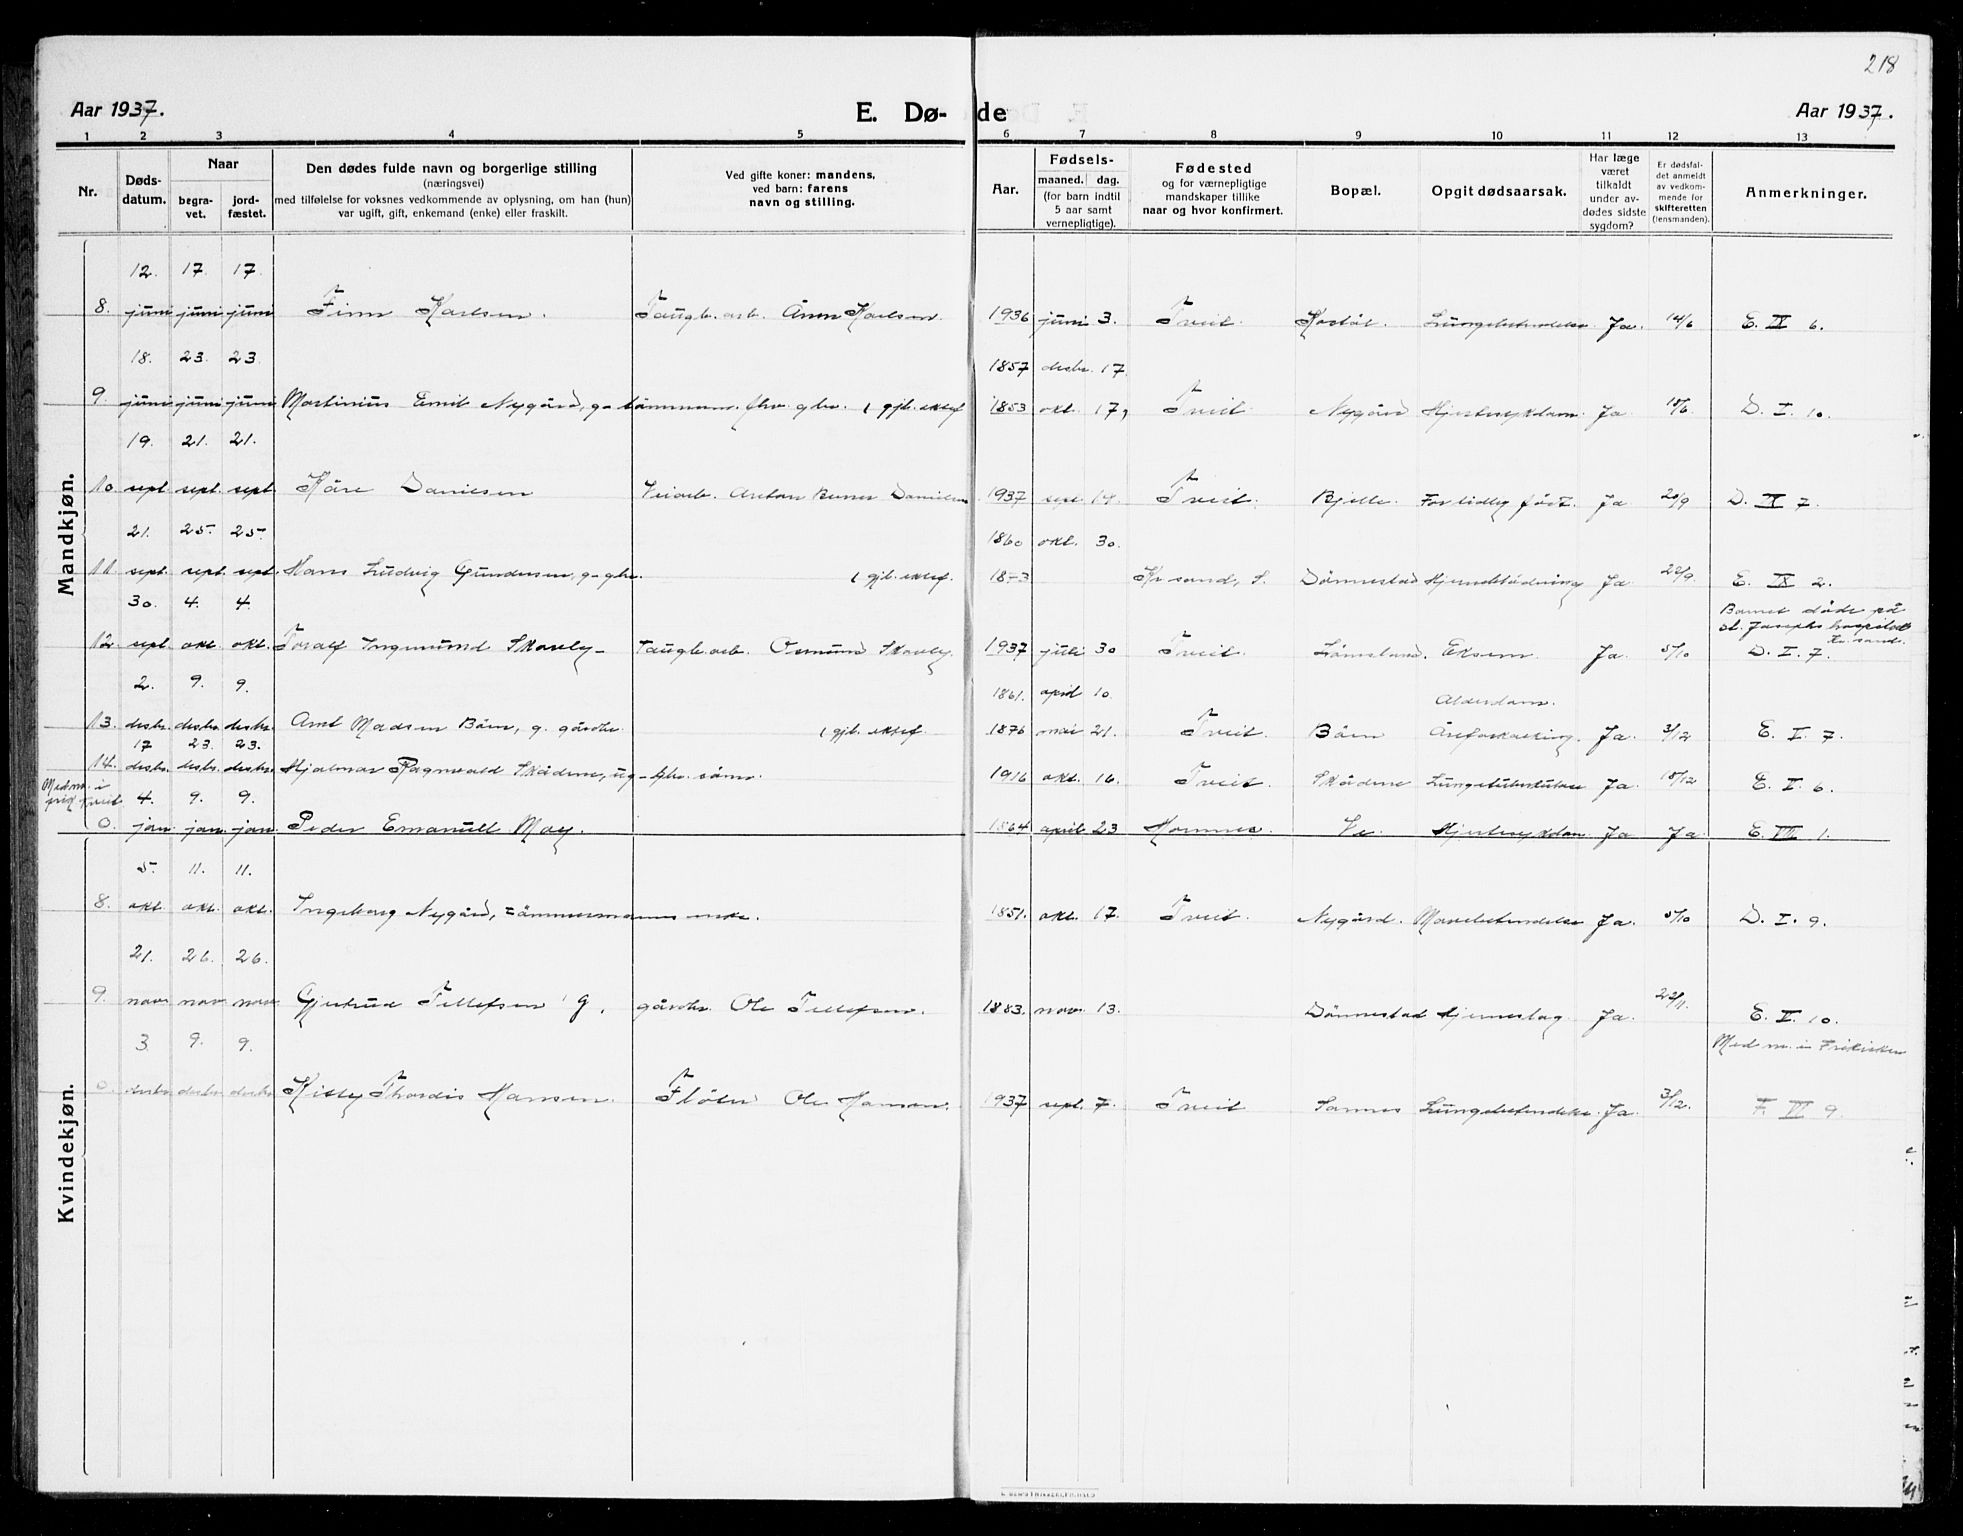 218
Aar 1937. E. Dø- de Aar 1937.
1 2 3 4 5 6 7 8 9 10 11 12 13
Nr. Døds-datum. Naar begra-vet. jord-fæstet. Den dødes fulde navn og borgerlige stilling (næringsvei) med tilføielse for voksnes vedkommende av oplysning, om han (hun) var ugift, gift, enkemand (enke) eller fraskilt. Ved gifte koner: mandens, ved barn: farens navn og stilling. Aar. Fødsels- maaned. dag. (for barn indtil 5 aar samt vernepligtige). Fødested og for værnepligtige mandskaper tillike naar og hvor konfirmert. Bopæl. Opgit dødsaarsak. Har læge været tilkaldt under av-dødes sidste sygdom? Er dødsfal-det anmeldt av vedkom-mende for skifteretten (lensmanden). Anmerkninger.
Mandkjøn.
12. 17. 17.
8. juni juni juni Finn Karlsen. Taugb. arb. Karlsen. 1936 juni 3. Tveit. Lungebetendelse Ja. 14/6 E. IX 6.
18. 23. 23. 1857 desbr. 17.
9. juni juni juni Martinius Emil Nygård, g. tømmerm. fhv. gbr. 1 gjl. ektef. 1853 okt. 17, Tveit. Nygård Hjertesykdom. Ja 18/6 D. I. 10.
19. 21. 21.
10 sept. sept. sept. Kåre Danielsen Veiarb. Anton Danielsen 1937 sept. 14. Tveit. Bjelle. For tidlig født. Ja 20/9 D. X 7.
21. 25. 25. 1860 okt. 30.
11. sept. sept. sept. Hans Ludvig Gundersen, g. gbr. 1 gjl. ektef. Kr.sand, S. Dønnestad Hjerneblødning Ja 22/9. E. IX 2.
30. 4. 4. Barnet døde på St. Josephs hospital Kr.sand.
12. sept. okt. okt. Toralf Ingmund Skarely Taugb. arb. Osmund Skarely. 1937 juli 30 Tveit. Eksem. Ja. 5/10 D. I. 7.
2. 9. 9. 1861. april 10. Alderdom.
13. desbr. desbr. desbr. Arnt Madsen Bøen, g. gårdbr. 1 gjl. ektef. 1876 mai 21. Tveit. Bøen Åreforkalkning. Ja. 3/12 E. I. 7.
17 23. 23.
14. desbr. desbr. desbr. Hjalmar Ragnvald Skådene, ug. gbr. sønn. 1916 okt. 16. Tveit. Skådene Lungetuberkulose Ja. 18/12 E. I. 6.
Medm. i
4. 9. 9.
0. jan. jan. jan. Peder Emanuell Moy. 1864 april 23 Hornnes. Ve. Hjertesykdom Ja Ja E. VII 1.
Kvindekjøn.
5. 11. 11.
8. okt. okt. okt. Ingeborg Nygård, tømmermanns enke. 1851. okt. 17. Tveit. Nygård. Mavebetendelse Ja. 5/10 D. I. 9.
21. 26. 26.
9. nov. nov. nov. Gjertrud Tellefsen G. gårdbr. Ole Tellefsen. 1883. nov. 13. Dønnestad Hjerneslag. Ja. 22/11. E. I. 10.
3. 9. 9. Med m. i Frikirken
0. desbr. desbr. desbr. Kitty Thordis Hansen. Fløter Ole Hansen. 1937 sept. 7. Tveit Sannes Lungebetendelse. Ja. 3/12. F. VI 9.